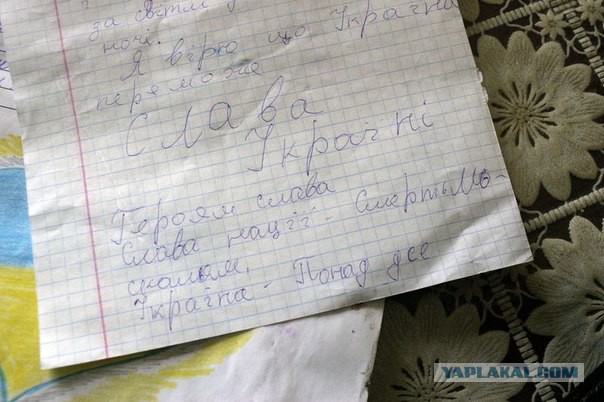 за світлі
ночі.
Я вірю що Україна
переможе
Слава
Україні
Героям слава
Слава нації - Смерть Мо-
скалям.
Україна - Понад усе
YAPLAKAL.COM